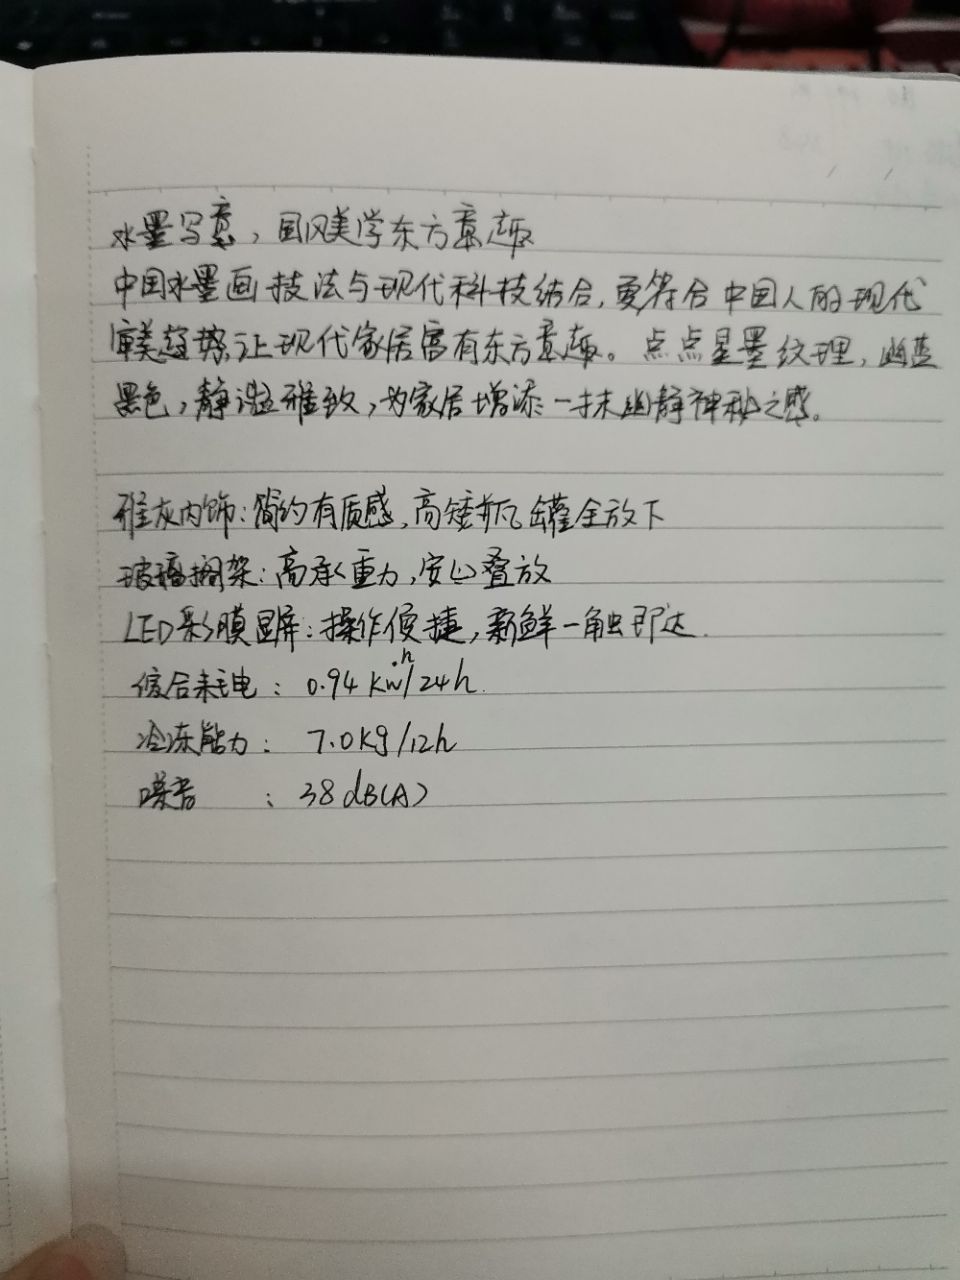 水墨写意，国风美学东方意趣
中国水墨画技法与现代科技结合，更符合中国人的现代
审美趋势，让现代家居富有东方意趣。点点星墨纹理，幽蓝
黑色，静谧雅致，为家居增添一抹幽静神秘之感。
雅灰内饰：简约有质感，高矮瓶罐全放下
玻璃搁架：高承重力，安心叠放
LED彩膜显屏：操作便捷，新鲜一触即达.
综合耗电：0.94 kw·h/24h.
冷冻能力：7.0Kg/12h
噪音：38dB(A)